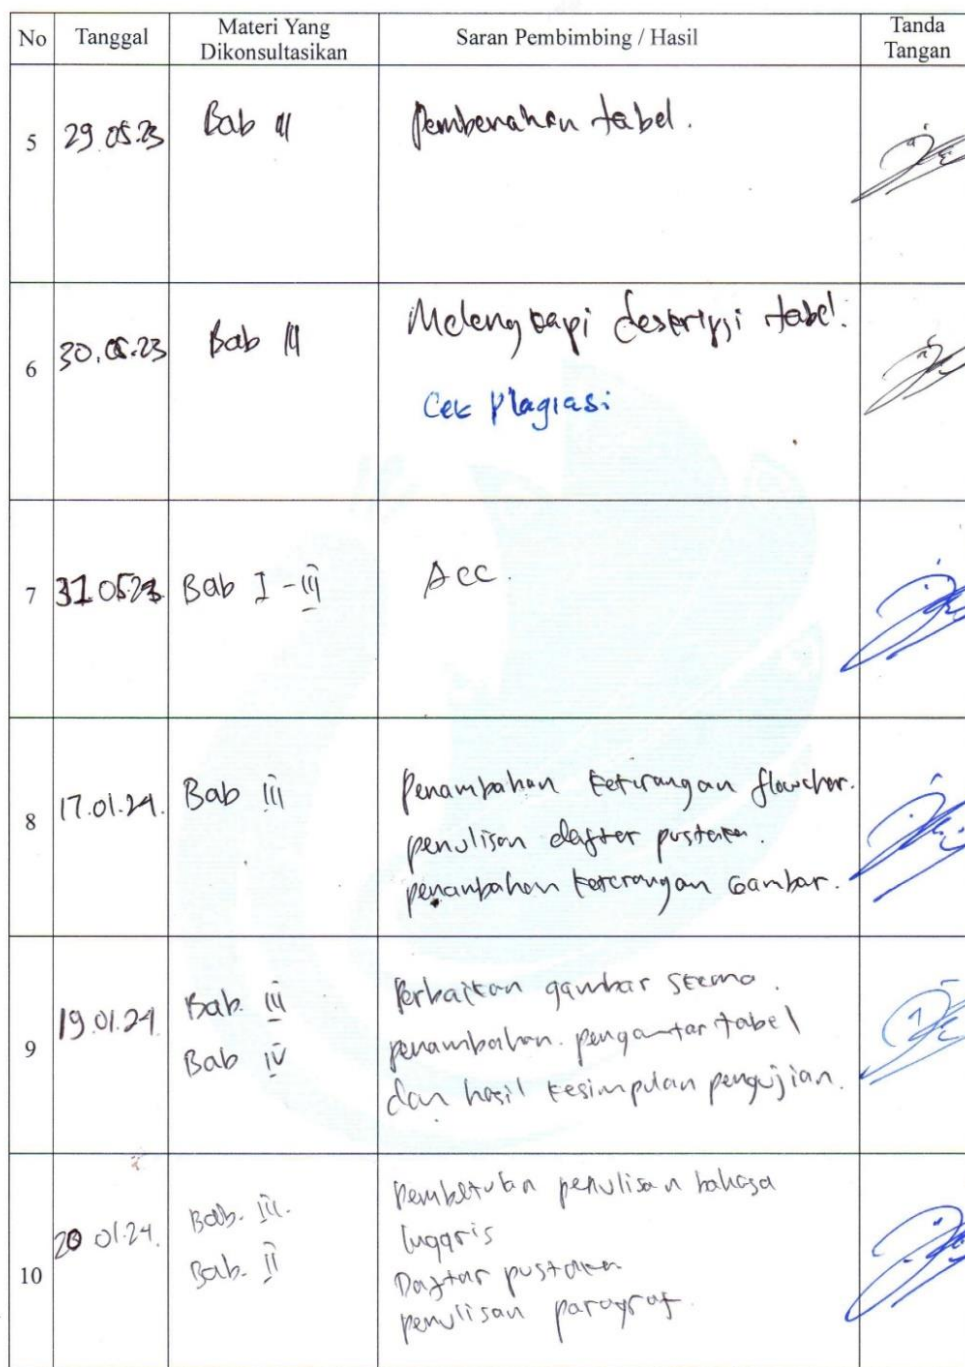 No Tanggal Materi Yang Dikonsultasikan Saran Pembimbing / Hasil Tanda Tangan
5 29.05.23 Bab III Pembenahan tabel.
6 30.05.23 Bab III Melengkapi deskripsi tabel.
Cek Plagiasi
7 31.05.23 Bab I - III Acc.
8 17.01.24. Bab III Penambahan keterangan flowchar.
penulisan daftar pustaka.
penambahan keterangan Gambar.
9 19.01.24. Bab. III Perbaikan gambar skema.
Bab IV penambahan pengantar tabel
dan hasil kesimpulan pengujian.
10 20 01.24. Bab. III. Pembetulan penulisan bahasa
Inggris
Bab. II Daftar pustaka
penulisan paragraf.